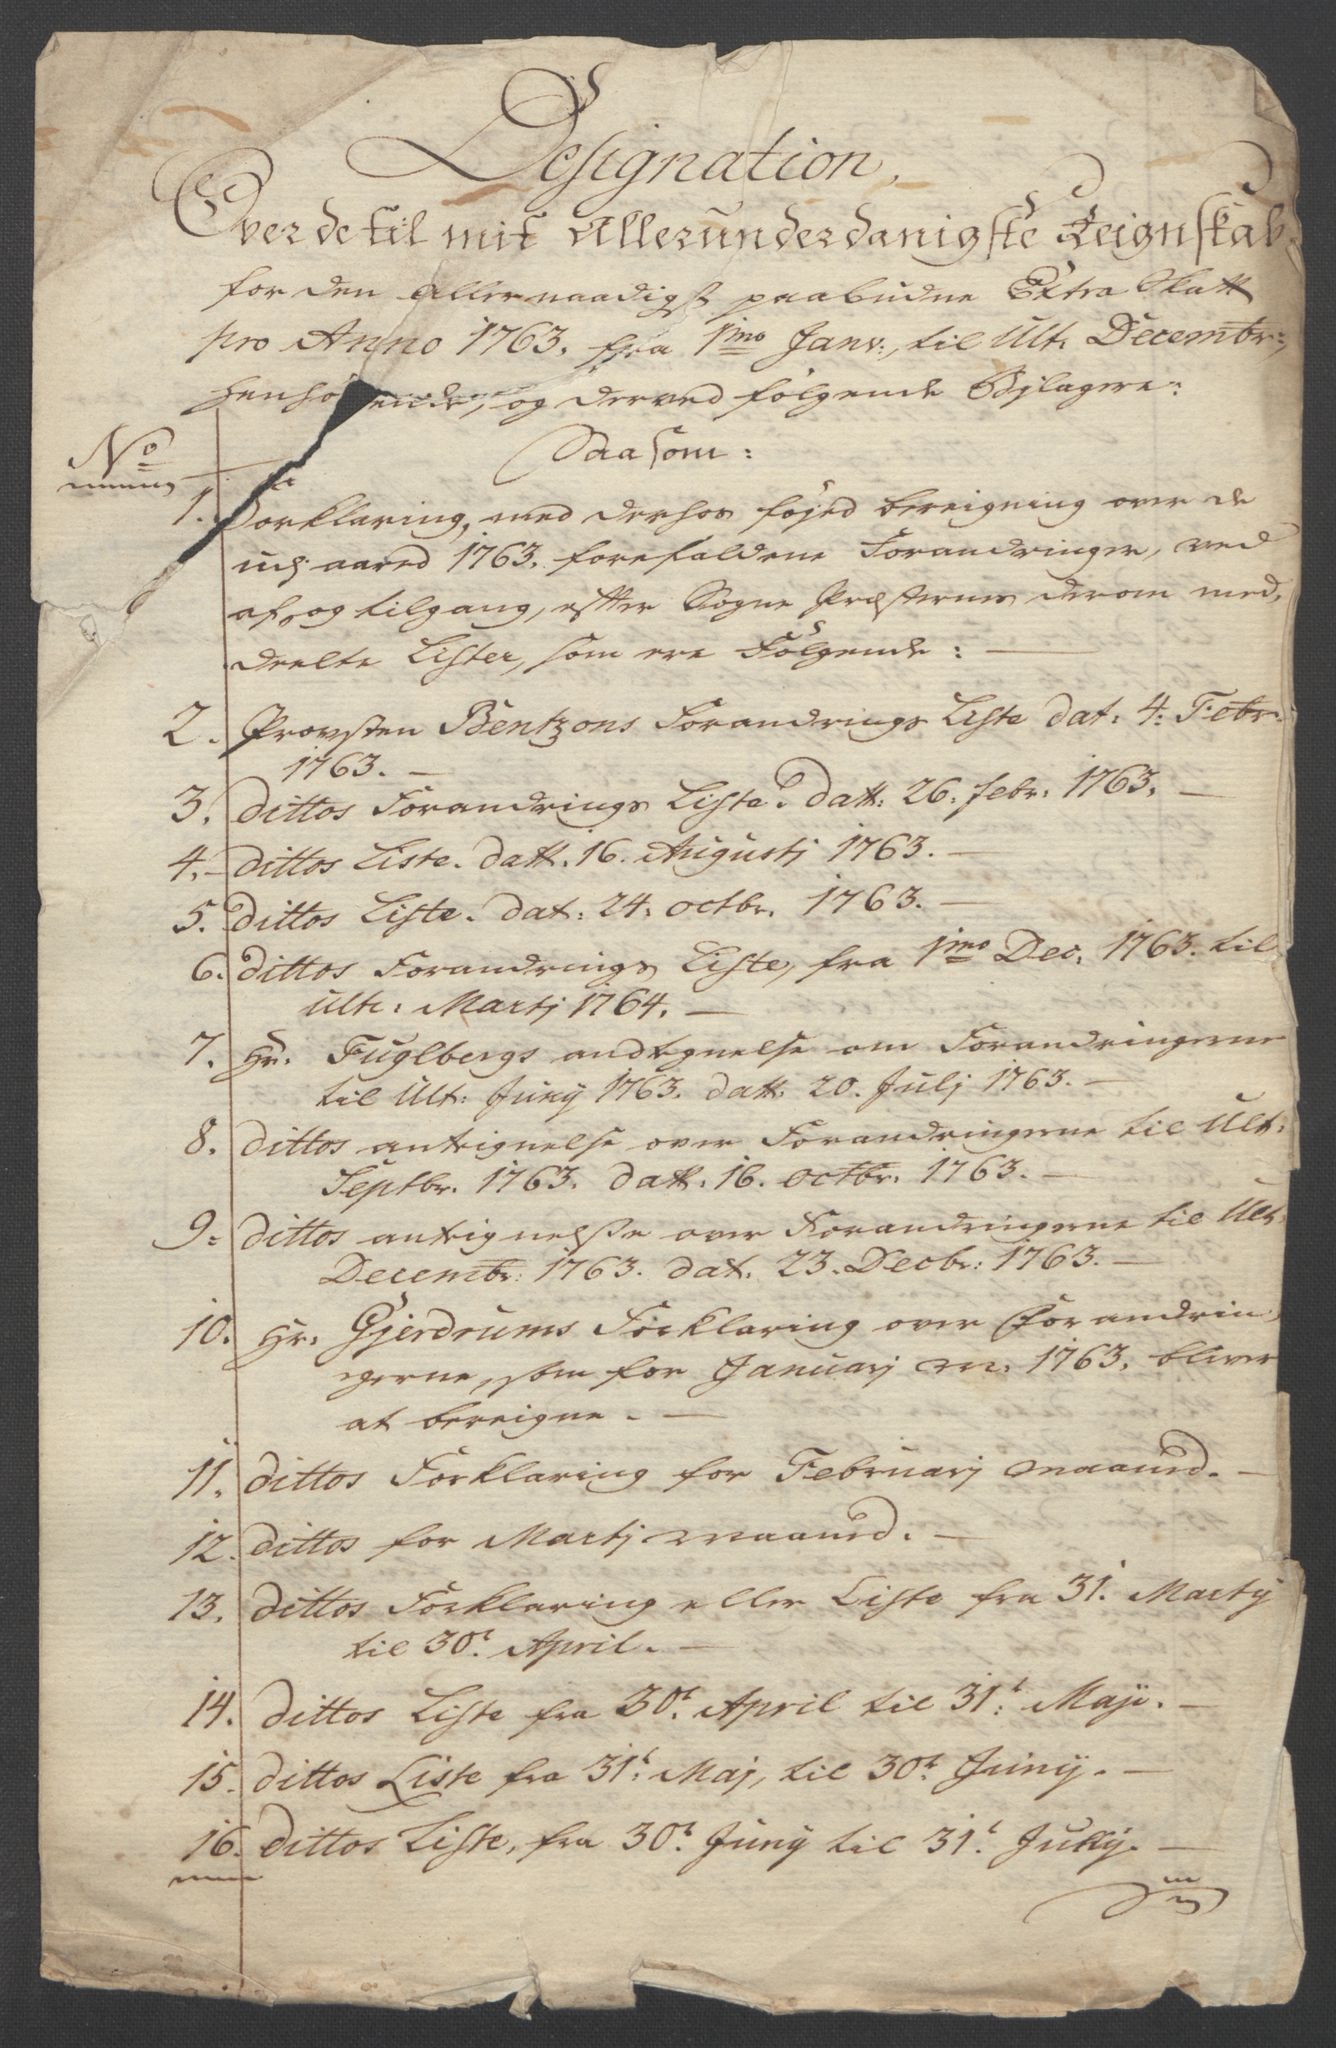 Designation,
Over de til mit allerunderdanigste Reignskab
for den allernaadigst paabudne Extra Skatt
pro Anno 1763. fra 1mo Janv:, til Ult. Decembr:,
henhørende, og derved følgende Bÿlagere:
Saasom:
No
1. Forklaring, med derhos føyed bereigning over de
udj aared 1763. forefaldene Forandringer, ved
af, og tilgang, efter Sogne Præsternes derom med,
deelte Lister, som ere Følgende:
2. Provsten Bentzons Forandrings Liste dat: 4: Febr:
1763. —
3. dittos Forandrings Liste. datt: 26. febr: 1763. —
4. dittos Liste. datt. 16. Augustj 1763. —
5. dittos Liste. dat: 24. octbr. 1763. —
6. dittos Forandrings Liste, fra 1mo Dec. 1763. til
ult: Martj 1764. —
7. Hr. Fuglbergs andtegnelse om Forandringerne
til Ult: Junÿ 1763. datt. 20. Julj 1763. —
8. dittos antegnelse over Forandringerne til Ult:
Septbr. 1763. datt. 16. octbr. 1763. —
9. dittos antegnelse over Forandringerne til Ult.
Decembr: 1763. dat. 23. Decbr: 1763. —
10. Hr. Gjerdrums Forklaring over Forandrin
gerne, som for Januarj m. 1763. bliver
at bereigne. —
11. dittos Forklaring for Februarj maaned. —
12. dittos for Martj maaned. —
13. dittos Forklaring eller Liste fra 31. Martÿ
til 30t. April. —
14. dittos Liste fra 30t. April til 31t. Maji. —
15. dittos Liste fra 31t. Maj, til 30t. Junÿ. —
16. dittos Liste, fra 30t. Junÿ til 31t. Julÿ. —